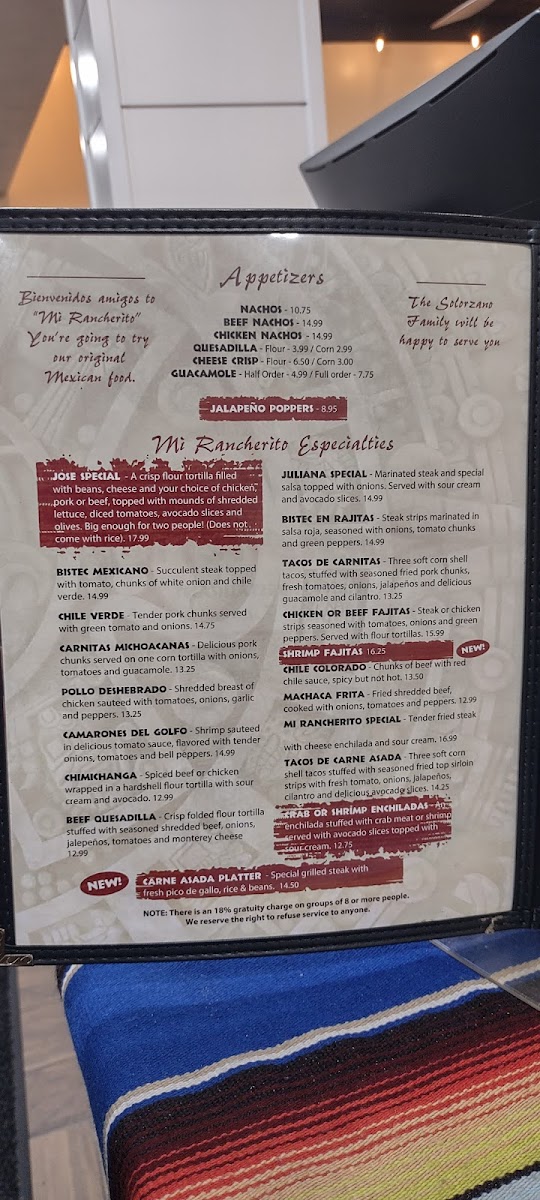 Bienvenidos amigos to
"Mi Rancherito"
You're going to try
our original
Mexican food.
Appetizers
NACHOS - 10.75
BEEF NACHOS - 14.99
CHICKEN NACHOS - 14.99
QUESADILLA - Flour - 3.99 / Corn 2.99
CHEESE CRISP - Flour - 6.50 / Corn 3.00
GUACAMOLE - Half Order - 4.99 / Full order - 7.75
JALAPEÑO POPPERS - 8.95
The Solorzano
Family will be
happy to serve you
Mi Rancherito Especialties
JOSE SPECIAL - A crisp flour tortilla filled
with beans, cheese and your choice of chicken,
pork or beef, topped with mounds of shredded
lettuce, diced tomatoes, avocado slices and
olives. Big enough for two people! (Does not
come with rice). 17.99
BISTEC MEXICANO - Succulent steak topped
with tomato, chunks of white onion and chile
verde. 14.99
CHILE VERDE - Tender pork chunks served
with green tomato and onions. 14.75
CARNITAS MICHOACANAS - Delicious pork
chunks served on one corn tortilla with onions,
tomatoes and guacamole. 13.25
POLLO DESHEBRADO - Shredded breast of
chicken sauteed with tomatoes, onions, garlic
and peppers. 13.25
CAMARONES DEL GOLFO - Shrimp sauteed
in delicious tomato sauce, flavored with tender
onions, tomatoes and bell peppers. 14.99
CHIMICHANGA - Spiced beef or chicken
wrapped in a hardshell flour tortilla with sour
cream and avocado. 12.99
BEEF QUESADILLA - Crisp folded flour tortilla
stuffed with seasoned shredded beef, onions,
jalepeños, tomatoes and monterey cheese
12.99
JULIANA SPECIAL - Marinated steak and special
salsa topped with onions. Served with sour cream
and avocado slices. 14.99
BISTEC EN RAJITAS - Steak strips marinated in
salsa roja, seasoned with onions, tomato chunks
and green peppers. 14.99
TACOS DE CARNITAS - Three soft corn shell
tacos, stuffed with seasoned fried pork chunks,
fresh tomatoes, onions, jalapeños and delicious
guacamole and cilantro. 13.25
CHICKEN OR BEEF FAJITAS - Steak or chicken
strips seasoned with tomatoes, onions and green
peppers. Served with flour tortillas. 15.99
SHRIMP FAJITAS 16.25
NEW!
CHILE COLORADO - Chunks of beef with red
chile sauce, spicy but not hot. 13.50
MACHACA FRITA - Fried shredded beef,
cooked with onions, tomatoes and peppers. 12.99
MI RANCHERITO SPECIAL - Tender fried steak
with cheese enchilada and sour cream. 16.99
TACOS DE CARNE ASADA - Three soft corn
shell tacos stuffed with seasoned fried top sirloin
strips with fresh tomato, onions, jalapeños,
cilantro and delicious avpcado slices. 14.25
CRAB OR SHRIMP ENCHILADAS - An
enchilada stuffed with crab meat or shrimp
served with avocado slices topped with
sour cream. 12.75
NEW!
CARNE ASADA PLATTER - Special grilled steak with
fresh pico de gallo, rice & beans. 14.50
NOTE: There is an 18% gratuity charge on groups of 8 or more people.
We reserve the right to refuse service to anyone.